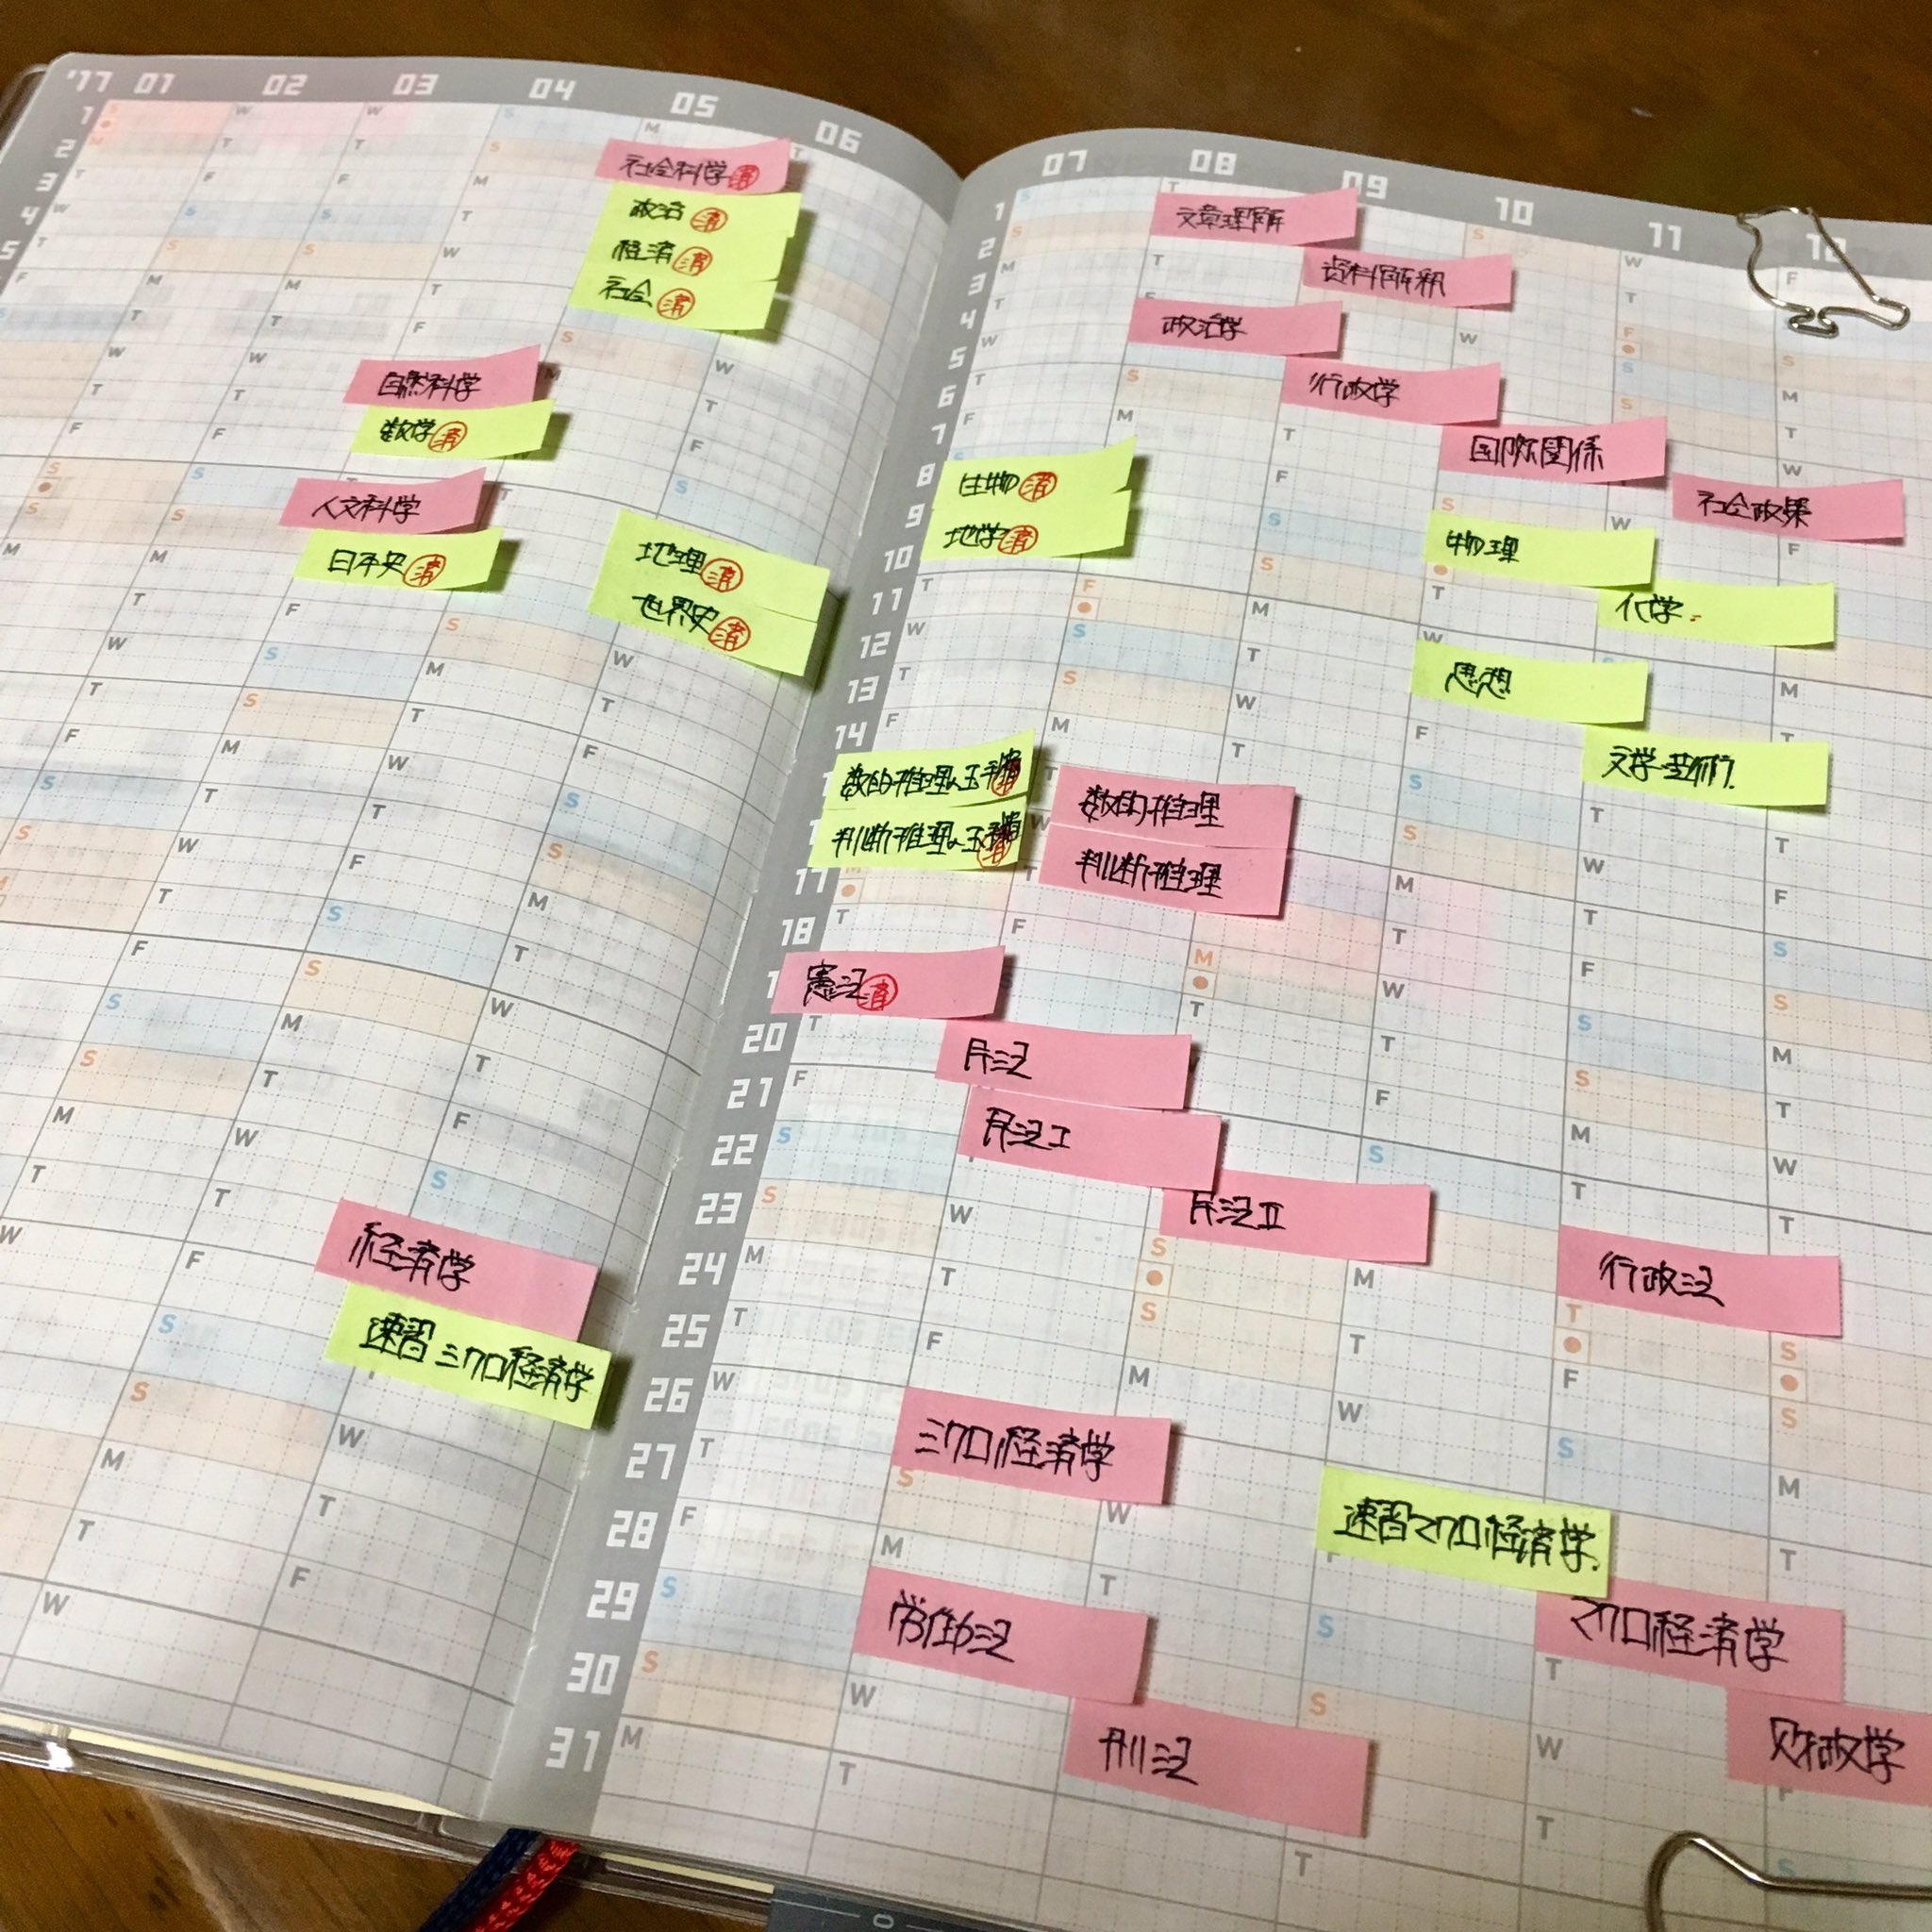 '17 01 02 03 04 05 06
1
2
3
4
5
社会科学 済
政治 済
経済 済
社会 済
自然科学
数学 済
人文科学
日本史 済
地理 済
世界史 済
経済学
速習 ミクロ経済学
07 08 09 10 11 12
1
2
3
4
5
6
7
8
9
10
11
12
13
14
17
18
20
21
22
23
24
25
26
27
28
29
30
31
文章理解
資料解釈
政治学
行政学
国際関係
社会政策
生物 済
地学 済
物理
化学
思想
文学・芸術
数的推理
判断推理
憲法 済
民法
民法I
民法II
行政法
ミクロ経済学
速習マクロ経済学
労働法
マクロ経済学
刑法
財政学